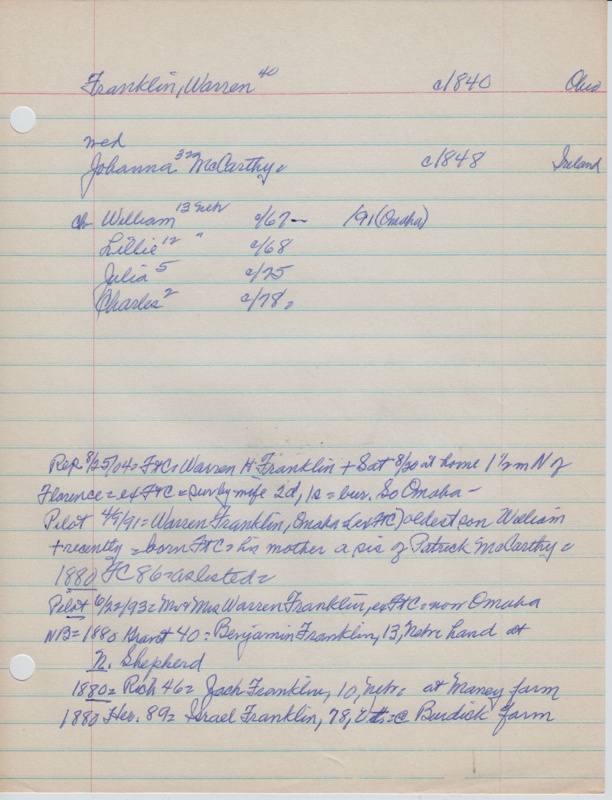 Franklin, Warren 40 c1840 Ohio
wed
Johanna 32 McCarthy = c1848 Ireland
ch William 13 Nebr c/67 - /91 (Omaha)
Lillie 12 " c/68
Julia 5 c/75
Charles 2 c/78 =
Rep 8/25/04 = Ft C = Warren H Franklin + Sat 8/20 at home 1½ m N of
Florence = ex Ft C = surv by wife 2d, 1s = bur. So Omaha -
Pilot 4/1/91 = Warren Franklin, Omaha (ex Ft C) oldest son William
+ recently = born Ft C = his mother a sis of Patrick McCarthy =
1880 FC 86 = as listed =
Pilot 6/22/93 = Mr & Mrs Warren Franklin, ex Ft C = now Omaha
NB = 1880 Grant 40 = Benjamin Franklin, 13, Nebr hand at
N. Shepherd
1880 = Rich 46 = Jack Franklin, 10, Nebr = at Maney farm
1880 Her. 89 = Israel Franklin, 78, @ Burdick farm